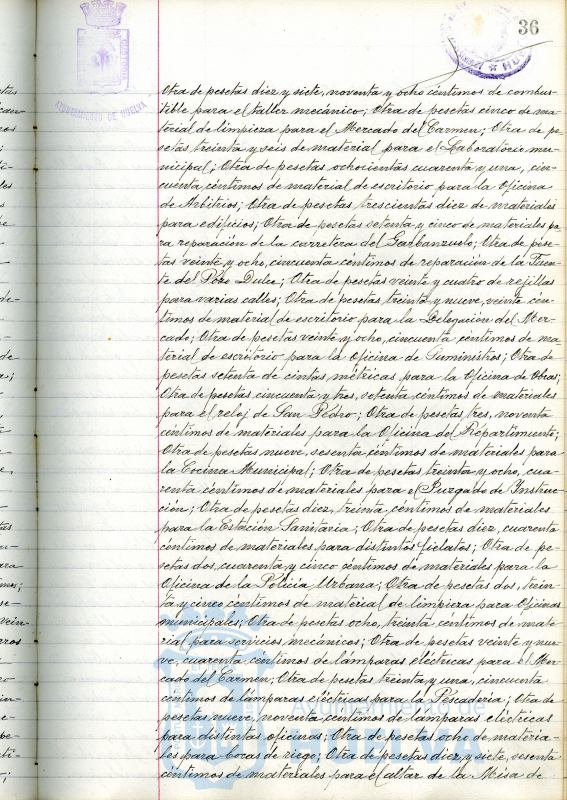 36
AYUNTAMIENTO DE HUELVA
Otra de pesetas diez y siete, noventa y ocho céntimos de combus-
tible para el taller mecánico; Otra de pesetas cinco de ma-
terial de limpieza para el Mercado del Carmen; Otra de pe-
setas treinta y seis de material para el Laboratorio mu-
nicipal; Otra de pesetas ochocientas cuarenta y una, cin-
cuenta céntimos de material de escritorio para la Oficina
de Arbitrios; Otra de pesetas trescientas diez de materiales
para edificios; Otra de pesetas setenta y cinco de materiales pa-
ra reparación de la carretera del Garbanzuelo; Otra de pese-
tas veinte y ocho, cincuenta céntimos de reparación de la Fuen-
te del Pozo Dulce; Otra de pesetas veinte y cuatro de rejillas
para varias calles; Otra de pesetas treinta y nueve, veinte cen-
timos de material de escritorio para la Delegación del Mer-
cado; Otra de pesetas veinte y ocho, cincuenta céntimos de ma-
terial de escritorio para la Oficina de Suministros; Otra de
pesetas setenta de cintas métricas para la Oficina de Obras;
Otra de pesetas cincuenta y tres, setenta céntimos de materiales
para el reloj de San Pedro; Otra de pesetas tres, noventa
céntimos de materiales para la Oficina del Repartimiento;
Otra de pesetas nueve, sesenta céntimos de materiales para
la Cocina Municipal; Otra de pesetas treinta y ocho, cua-
renta céntimos de materiales para el Juzgado de Instruc-
ción; Otra de pesetas diez, treinta céntimos de materiales
para la Estación Sanitaria; Otra de pesetas diez, cuarenta
céntimos de materiales para distintos fielatos; Otra de pe-
setas dos, cuarenta y cinco céntimos de materiales para la
Oficina de la Policía Urbana; Otra de pesetas dos, trein-
ta y cinco céntimos de material de limpieza para Oficinas
municipales; Otra de pesetas ocho, treinta céntimos de mate-
rial para servicios mecánicos; Otra de pesetas veinte y nue-
ve, cuarenta céntimos de lamparas eléctricas para el Mer-
cado del Carmen; Otra de pesetas treinta y una, cincuenta
céntimos de lámparas eléctricas para la Pescaderia; Otra de
pesetas nueve, noventa céntimos de lamparas eléctricas
para distintas oficinas; Otra de pesetas ocho de materia-
les para bocas de riego; Otra de pesetas diez y siete, sesenta
céntimos de materiales para el altar de la Misa de
Ayuntamiento de
HUELVA